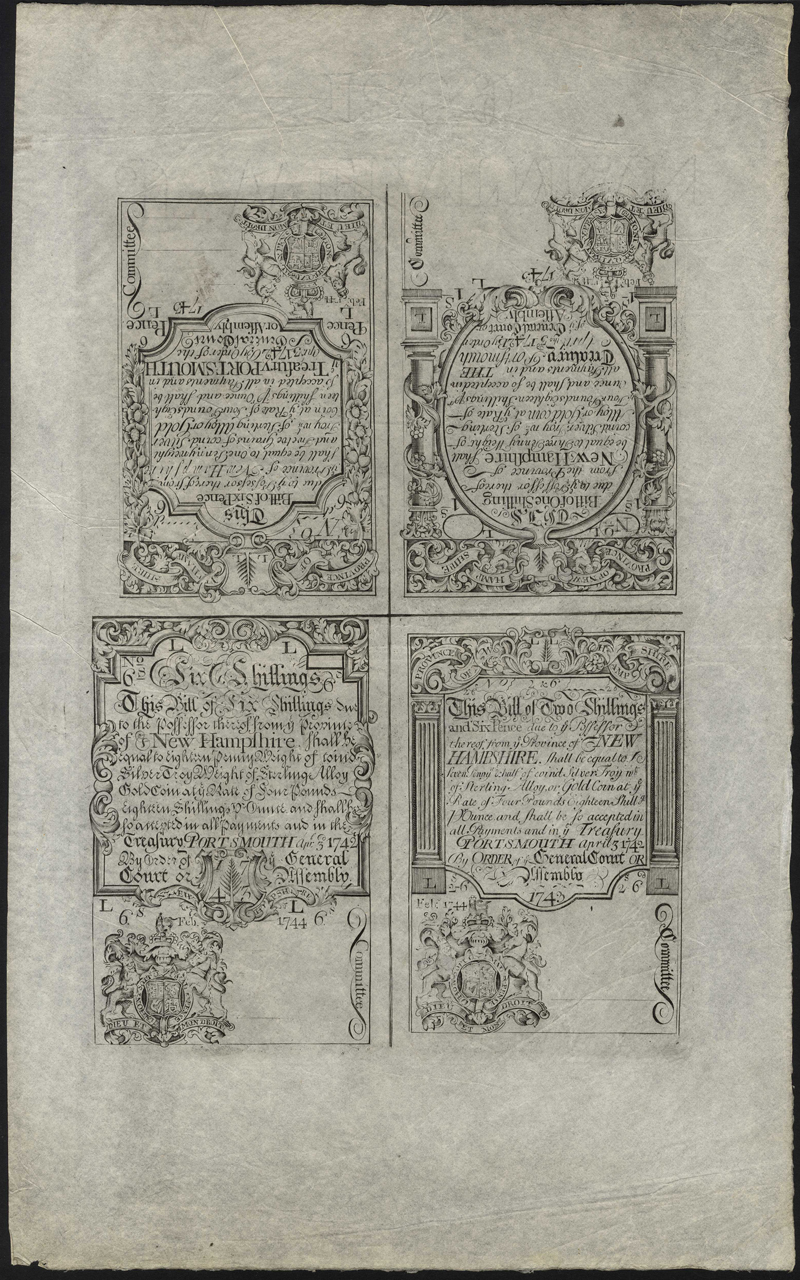 PROVINCE OF NEW HAMP SHIRE
This
Bill of Six Pence
due to yͤ Possessor thereof from
yͤ Province of New Hampshire
shall be equal to One Pennyweight
and twelve Grains of coind Silver
Troy wt. of Sterling Alloy or Gold
Coin at yͤ Rate of Four Pounds Eigh
teen Shillings pr Ounce and shall be
so accepted in all Payments and in
yͤ Treasury PORTSMOUTH
By Order of the
General Court
or Assembly
6 Pence
6 Pence
L
L
1743
Feb. 1744
DIEU ET MON DROIT
Committee
PROVINCE OF NEW HAMP SHIRE
No
1S
THIS
Bill of One Shilling
due to yͤ Possessor thereof
from the Province of
New Hampshire shall
be equal to Three Penny Weight of
coind Silver Troy wt. of Sterling
Alloy or Gold Coin at yͤ Rate of
Four Pounds Eighteen Shillings pr
Ounce and shall be so accepted in
all Payments and in THE
Treasury of Portsmouth
April 3 1742 By Order
of yͤ General Court or
Assembly
1S
1S
L
L
L
1743
DIEU ET MON DROIT
Committee
L L
No
6S
Six Shillings
This Bill of Six Shillings due
to the Possessor thereof from yͤ Province
of New Hampshire shall be
equal to eighteen Penny Weight of coind
Silver Troy Weight of Sterling Alloy
Gold Coin at yͤ Rate of Four Pounds
eighteen Shillings pr Ounce and shall be
so accepted in all Payments and in the
Treasury PORTSMOUTH apr. 3 1742
By Order of yͤ General
Court or Assembly
L L
6S
Feb. 1744 6S
DIEU ET MON DROIT
Committee
PROVINCE OF NEW HAMP SHIRE
L L
This Bill of Two Shillings
and Six Pence due to yͤ Possessor
thereof from yͤ Province of NEW
HAMPSHIRE shall be equal to
seven Penny wt. & half of coind Silver Troy wt.
of Sterling Alloy or Gold Coin at yͤ
Rate of Four Pounds Eighteen Shills
pr Ounce and shall be so accepted in
all Payments and in yͤ Treasury
PORTSMOUTH april 3 1742
By ORDER of yͤ General Court OR
Assembly
L L
2S 6
1743
Feb. 1744
DIEU ET MON DROIT
Committee